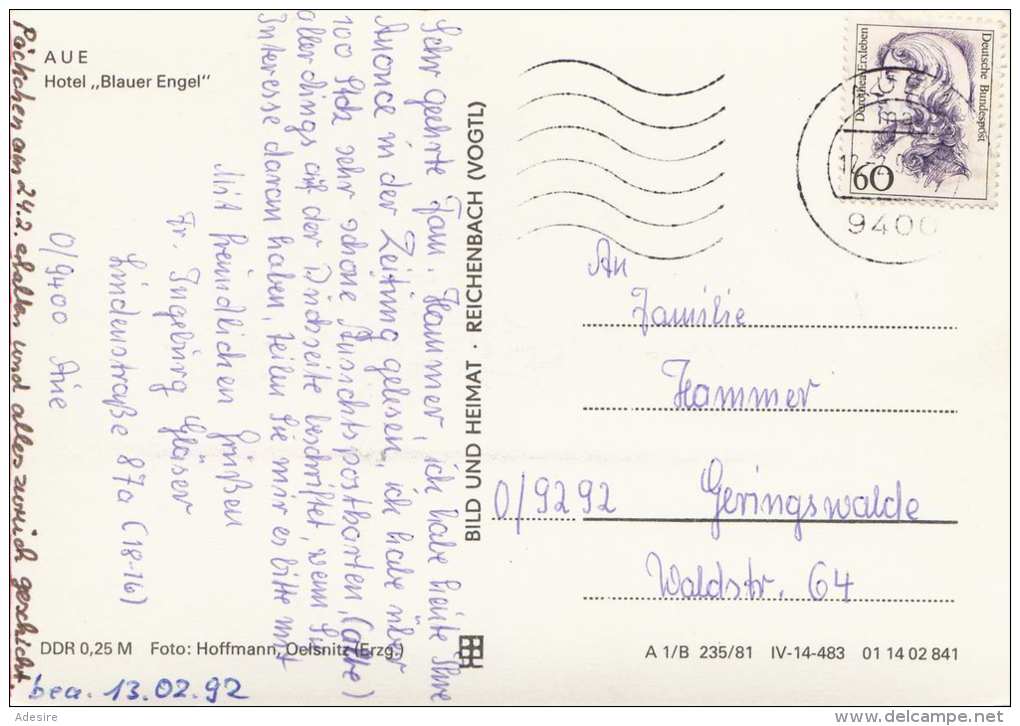 AUE
Hotel „Blauer Engel“
Sehr geehrte Fam. Hammer, ich habe heute Ihre
Anonce in der Zeitung gelesen, ich habe über
100 Stck sehr schöne Ansichtspostkarten, (alte)
allerdings auf der Rückseite beschriftet, wenn Sie
Interesse daran haben, teilen Sie mir es bitte mit
Mit freundlichen Grüßen
Fr. Ingeburg Gläser
Lindenstraße 87a (18-16)
O/9400 Aue
Päckchen am 24.2. erhalten und alles zurück geschickt.
bea. 13.02.92
DDR 0,25 M Foto: Hoffmann, Oelsnitz (Erzg.)
BILD UND HEIMAT · REICHENBACH (VOGTL)
Deutsche Bundespost
Dorothea Erxleben
60
9400
An
Familie
Hammer
O/9292 Geringswalde
Waldstr. 64
A 1/B 235/81 IV-14-483 01 14 02 841
Adesire
delcampe.net